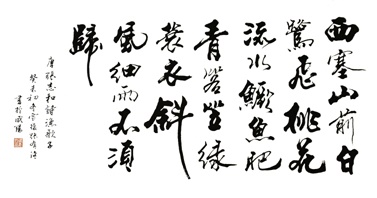 西塞山前白
鷺飛桃花
流水鱖魚肥
青箬笠綠
蓑衣斜
風細雨不須
歸
唐張志和詩漁歌子
癸未初冬